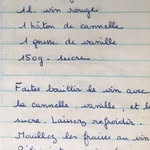 1l. vin rouge
1 bâton de cannelle
1 gousse de vanille
150g. sucre
Faites bouillir le vin avec
la cannelle, vanille, et le
sucre. Laissez refroidir.
Mouillez les fraises au vin